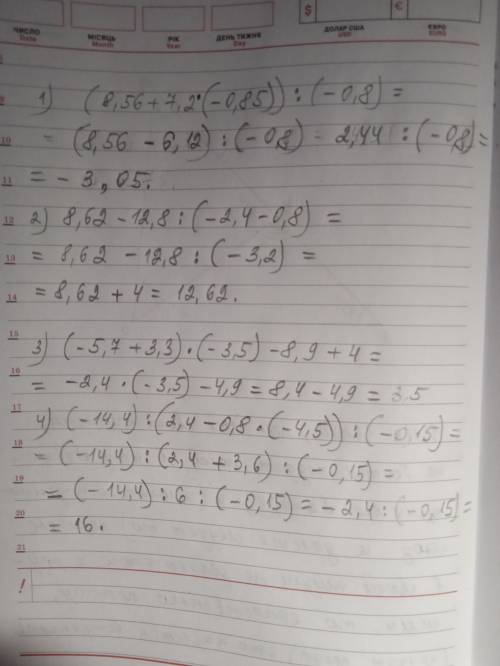 $
€
ЧИСЛО
Date
МІСЯЦЬ
Month
РІК
Year
ДЕНЬ ТИЖНЯ
Day
ДОЛАР США
USD
ЄВРО
EURO
9 1) (8,56+7,2·(-0,85)) : (-0,8) =
10 = (8,56 - 6,12) : (-0,8) = 2,44 : (-0,8) =
11 = - 3,05.
12 2) 8,62 - 12,8 : (-2,4 - 0,8) =
13 = 8,62 - 12,8 : (-3,2) =
14 = 8,62 + 4 = 12,62.
15 3) (-5,7 + 3,3) · (-3,5) - 8,9 + 4 =
16 = -2,4 · (-3,5) - 4,9 = 8,4 - 4,9 = 3,5
17 4) (-14,4) : (2,4 - 0,8 · (-4,5)) : (-0,15) =
18 = (-14,4) : (2,4 + 3,6) : (-0,15) =
19 = (-14,4) : 6 : (-0,15) = -2,4 : (-0,15) =
20 = 16.
21
!